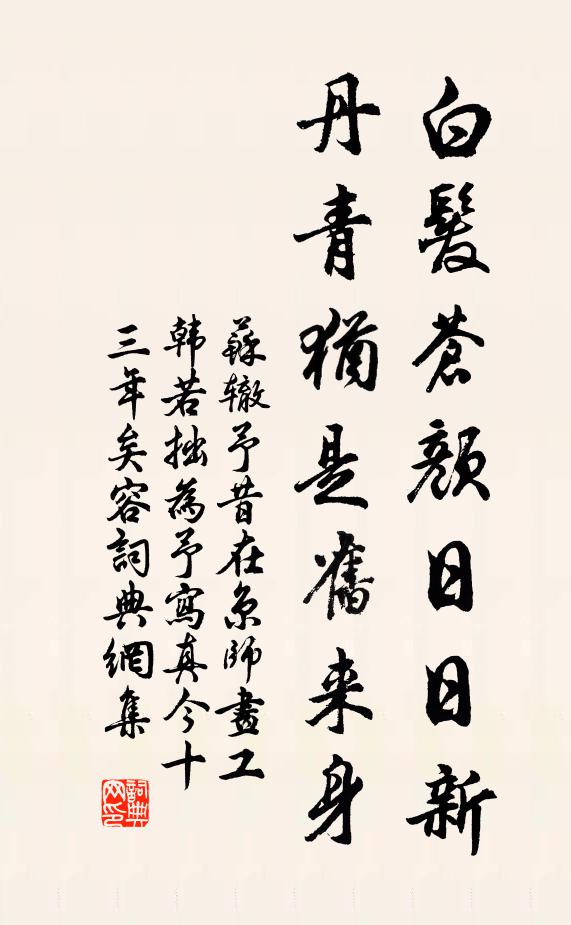 白髮蒼顏日日新
丹青猶是舊来身
蘇辙予昔在京師畫工
韩若拙為予寫真今十
三年矣容詞典網集
詞典
网印